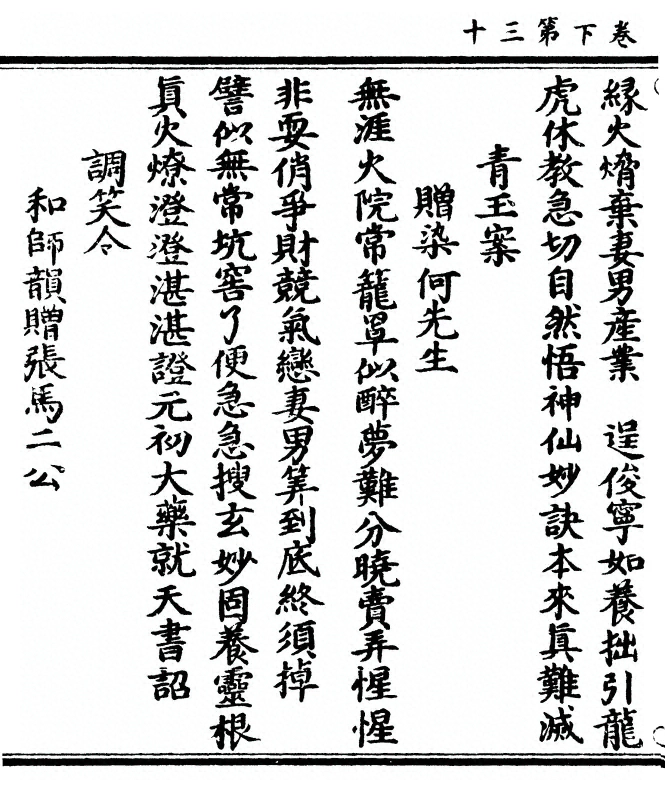 卷下第三十
緣火熁棄妻男產業　逞俊寧如養拙引龍
虎休教急切自然悟神仙妙訣本來眞難滅
青玉案
贈染何先生
無涯火院常籠罩似醉夢難分曉費弄惺惺
非耍俏爭財競氣戀妻男筭到底終須掉
譬似無常坑窖了便急急搜玄妙固養靈根
眞火燎澄澄湛湛證元初大藥就天書詔
調笑令
和師韻贈張馬二公